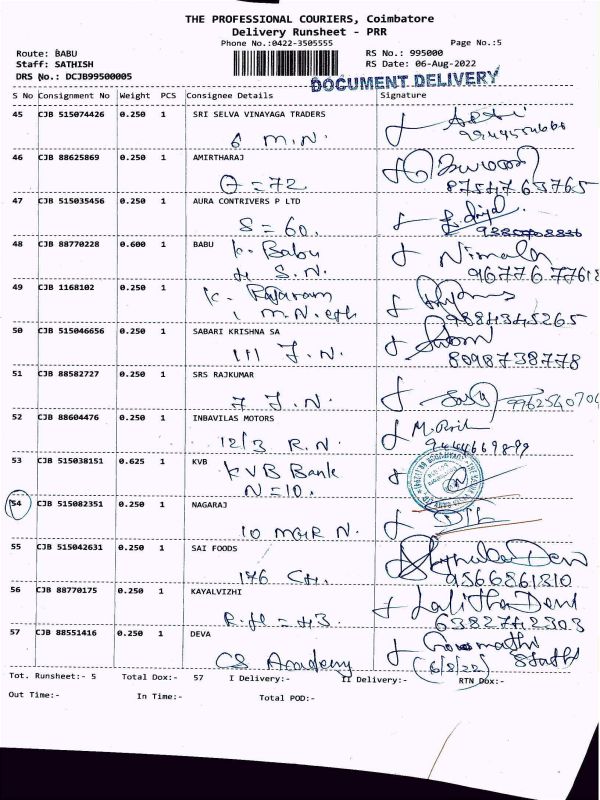 THE PROFESSIONAL COURIERS, Coimbatore
Delivery Runsheet - PRR
Phone No.:0422-3505555 Page No.:5
Route: BABU RS No.: 995000
Staff: SATHISH RS Date: 06-Aug-2022
DRS No.: DCJB99500005 DOCUMENT DELIVERY
S No Consignment No Weight PCS Consignee Details Signature
45 CJB 515074426 0.250 1 SRI SELVA VINAYAGA TRADERS
6 M.N.
46 CJB 88625869 0.250 1 AMIRTHARAJ
= 72 8754763765
47 CJB 515035456 0.250 1 AURA CONTRIVERS P LTD
S = 60.
48 CJB 88770228 0.600 1 BABU K. Babu Nirmala
S.N. 9677677618
49 CJB 1168102 0.250 1 K. Rajaram
M.N. 9884345265
50 CJB 515046656 0.250 1 SABARI KRISHNA SA
111 J.N. 8098738778
51 CJB 88582727 0.250 1 SRS RAJKUMAR
7 J.N. 9962540704
52 CJB 88604476 0.250 1 INBAVILAS MOTORS
12/3 R.N. 9444669899
53 CJB 515038151 0.625 1 KVB
KVB Bank
N=10.
54 CJB 515082351 0.250 1 NAGARAJ
10 MGR N.
55 CJB 515042631 0.250 1 SAI FOODS Devi
176 9566861810
56 CJB 88770175 0.250 1 KAYALVIZHI Lalitha Devi
= 43. 6382742303
57 CJB 88551416 0.250 1 DEVA Gomathi
CS Academy (6/8/22) Staff
Tot. Runsheet:- 5 Total Dox:- 57 I Delivery:- II Delivery:- RTN Dox:-
Out Time:- In Time:- Total POD:-